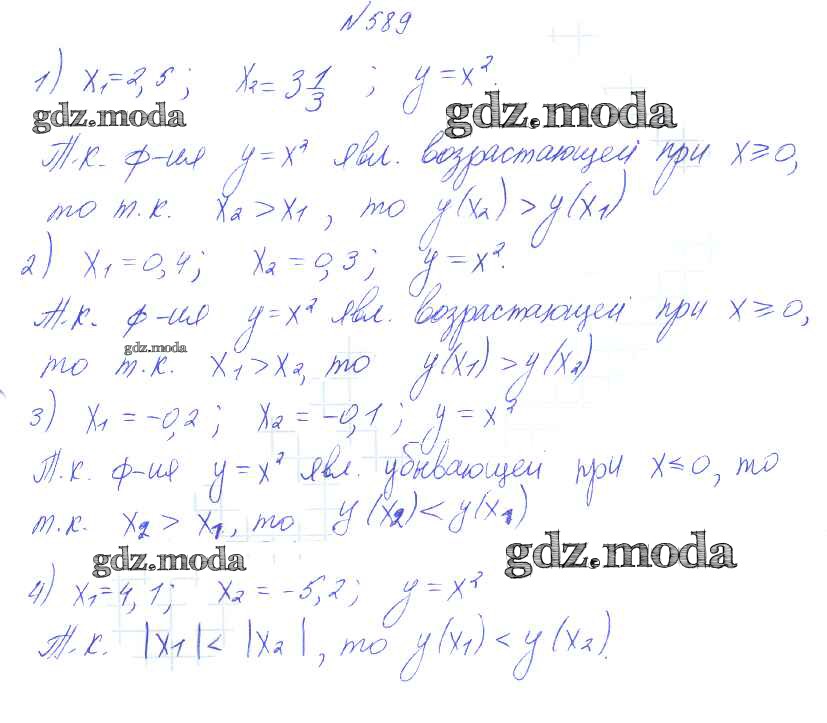 №589
1) x₁=2,5; x₂=3 1/3; y=x².
gdz.moda gdz.moda
Т.к. ф-ия y=x² явл. возрастающей при x≥0,
то т.к. x₂>x₁, то y(x₂)>y(x₁)
2) x₁=0,4; x₂=0,3; y=x².
Т.к. ф-ия y=x² явл. возрастающей при x≥0,
gdz.moda
то т.к. x₁>x₂, то y(x₁)>y(x₂)
3) x₁=-0,2; x₂=-0,1; y=x²
Т.к. ф-ия y=x² явл. убывающей при x≤0, то
т.к. x₂>x₁, то y(x₂)<y(x₁)
gdz.moda gdz.moda
4) x₁=4,1; x₂=-5,2; y=x²
Т.к. |x₁|<|x₂|, то y(x₁)<y(x₂).